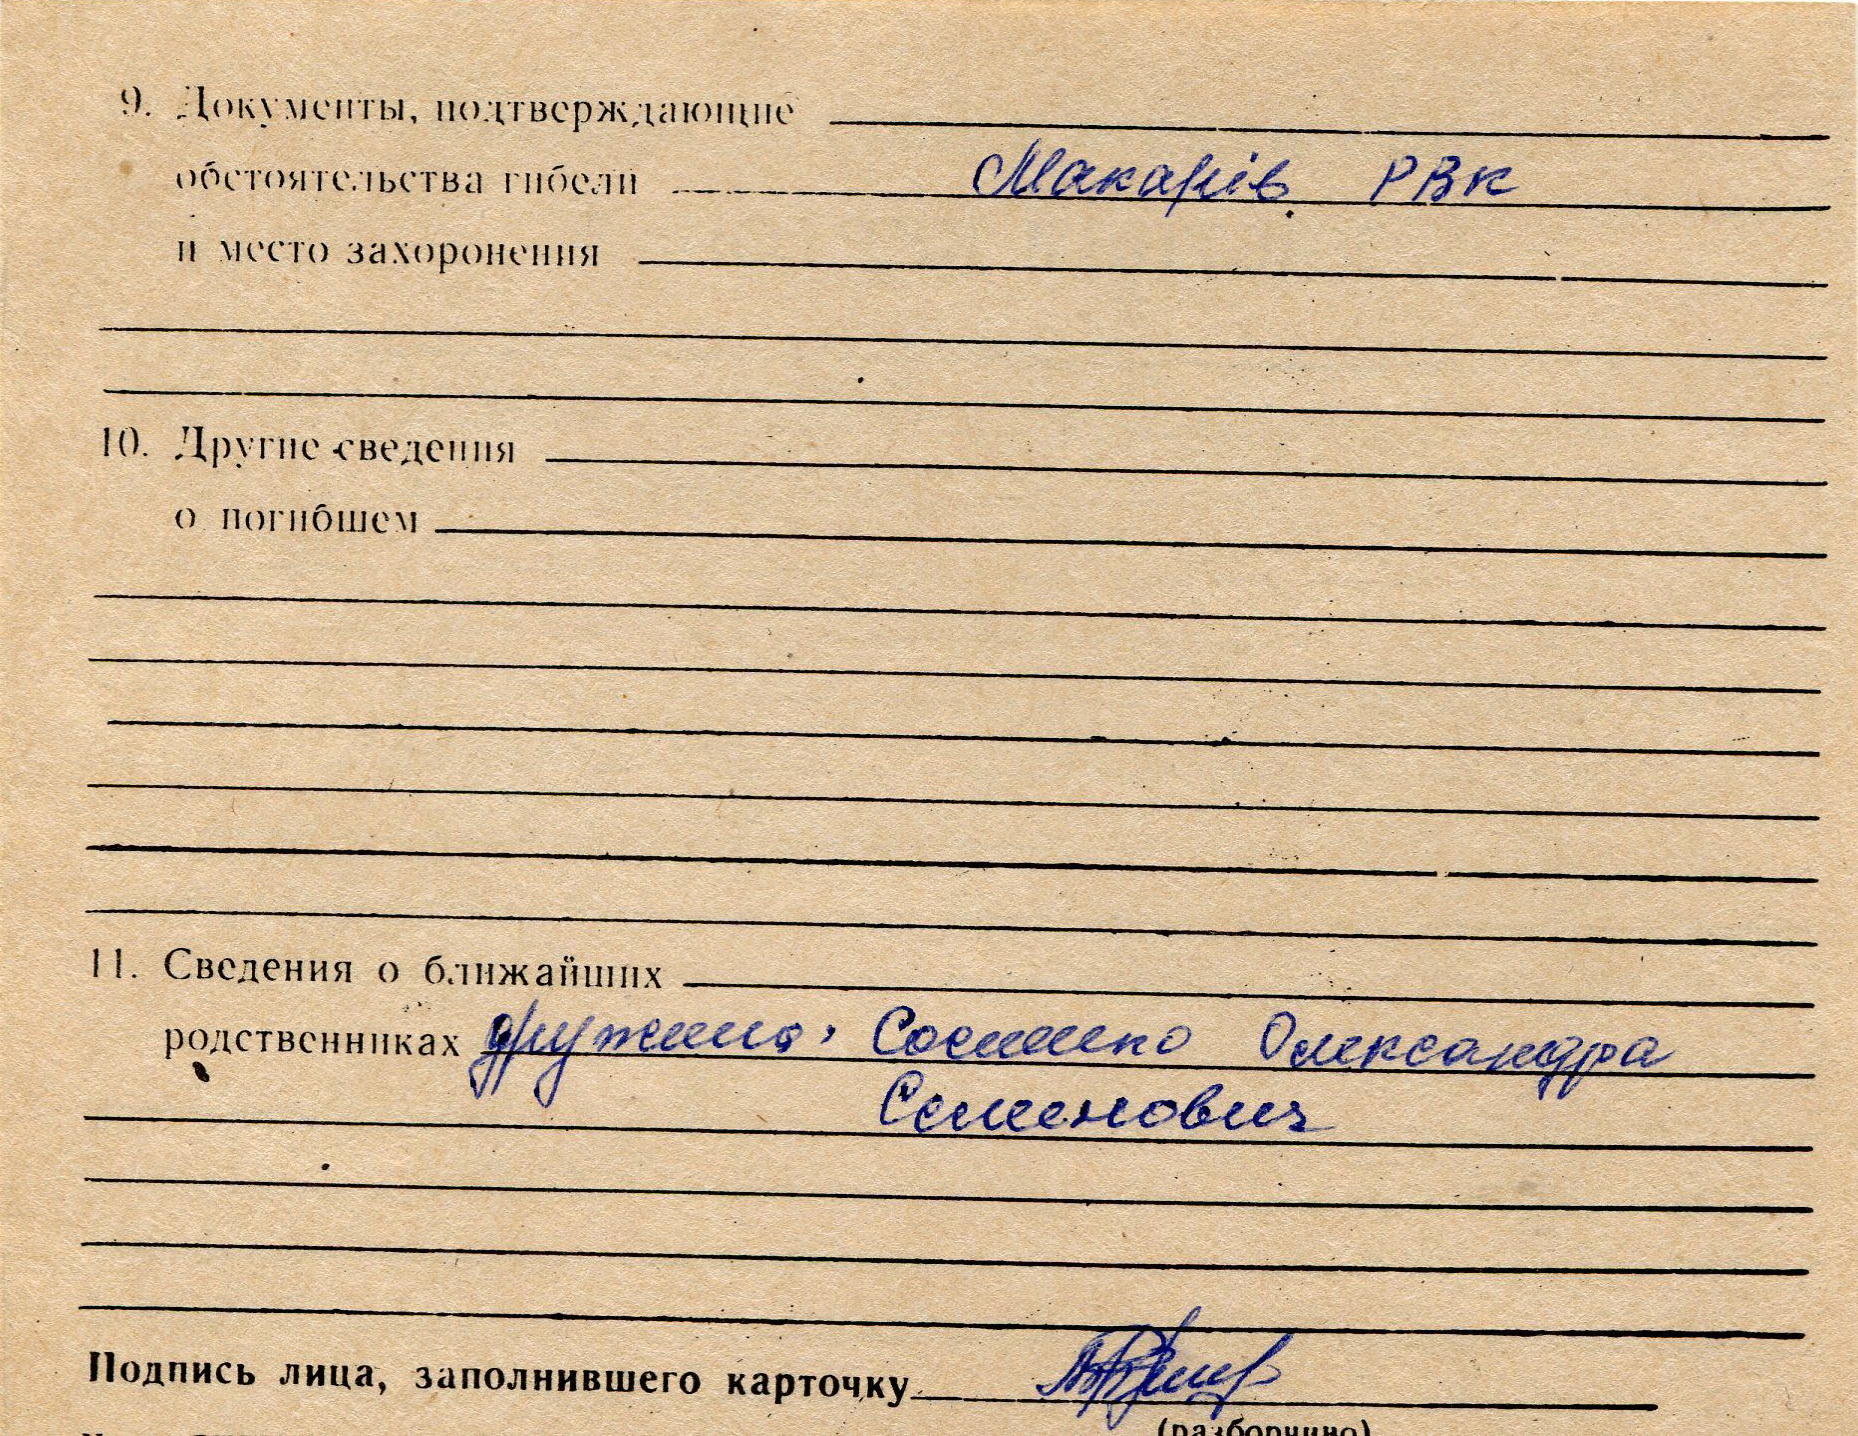 9. Документы, подтверждающие
обстоятельства гибели Макарів РВК
и место захоронения
10. Другие сведения
о погибшем
11. Сведения о ближайших
родственниках дружина, Олександра
Семенович
Подпись лица, заполнившего карточку
(разборчиво)